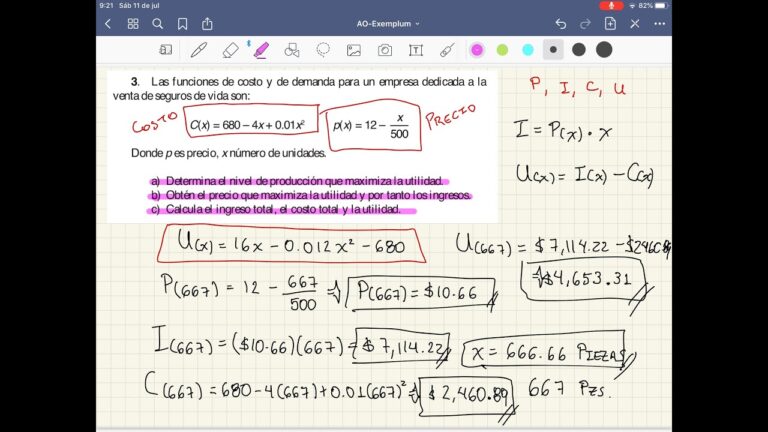 9:21 Sáb 11 de jul
82%
AO-Exemplum
3. Las funciones de costo y de demanda para un empresa dedicada a la
venta de seguros de vida son:
COSTO
C(x) = 680 – 4x + 0.01x²
p(x) = 12 – x/500
PRECIO
Donde p es precio, x número de unidades.
a) Determina el nivel de producción que maximiza la utilidad.
b) Obtén el precio que maximiza la utilidad y por tanto los ingresos.
c) Calcula el ingreso total, el costo total y la utilidad.
P, I, C, U
I = P(x) · x
U(x) = I(x) – C(x)
U(x) = 16x – 0.012x² – 680
U(667) = $7,114.22 – $2460.89
$4,653.31
P(667) = 12 – 667/500
P(667) = $10.66
I(667) = ($10.66)(667) = $7,114.22
x = 666.66 PIEZAS
C(667) = 680 – 4(667) + 0.01(667)²
$2,460.89
667 PZS.